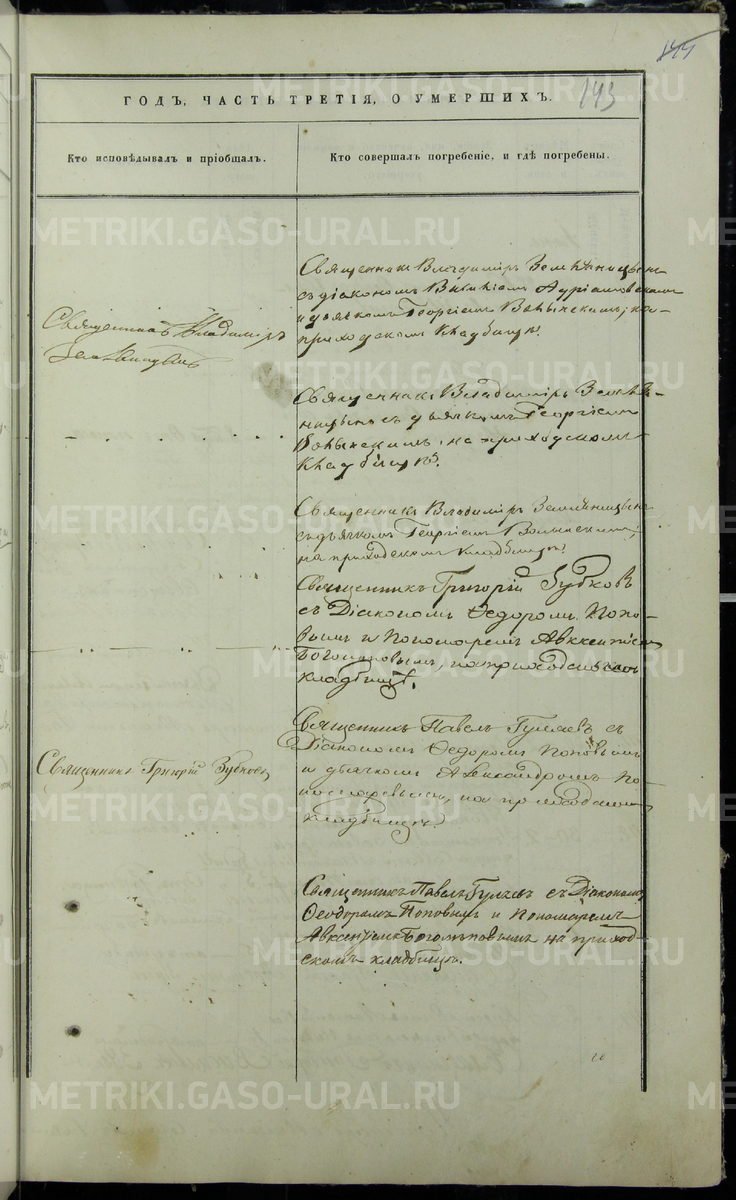 144
143
ГОДЪ, ЧАСТЬ ТРЕТІЯ, О УМЕРШИХЪ.
Кто исповѣдывалъ и пріобщалъ.
Кто совершалъ погребеніе, и гдѣ погребены.
Священникъ Владиміръ Землѣницынъ
съ діакономъ Адріановскимъ
и дьячкомъ Георгіемъ Волынскимъ, на
приходскомъ кладбищѣ.
Священникъ Владиміръ
Землѣницынъ
Священникъ Владиміръ Землѣ-
ницынъ съ дьячкомъ Георгіемъ
Волынскимъ, на приходскомъ
кладбищѣ.
Священникъ Владиміръ Землѣницынъ
съ дьячкомъ Георгіемъ Волынскимъ,
на приходскомъ кладбищѣ.
Священникъ Григорій Зубковъ
съ Діакономъ Ѳедоромъ Попо-
вымъ и Пономаремъ Авксентіемъ
Боголѣповымъ, на приходскомъ
кладбищѣ.
Священникъ Григорій Зубковъ
Священникъ Павелъ Гуляевъ съ
Діакономъ Ѳедоромъ Поповымъ
и дьячкомъ Александромъ По-
номаревымъ, на приходскомъ
кладбищѣ.
Священникъ Павелъ Гуляевъ съ Діакономъ
Ѳеодоромъ Поповымъ и Пономаремъ
Авксентіемъ Боголѣповымъ на приход-
скомъ кладбищѣ.
METRIKI.GASO-URAL.RU